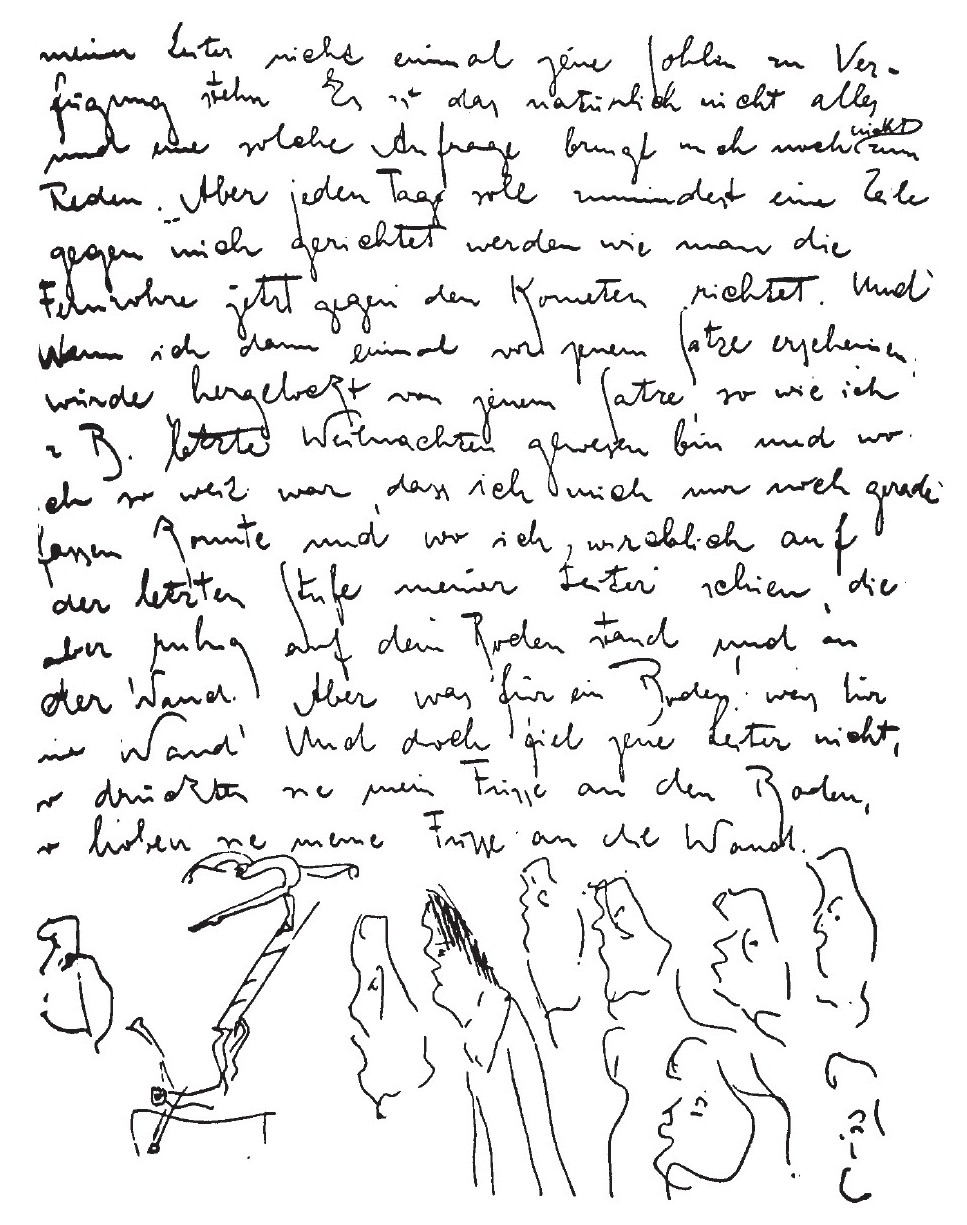 meiner Leiter nicht einmal jene Sohlen zu Ver-
fügung stehn Es ist das natürlich nicht alles
und eine solche Anfrage bringt mich noch nicht zum
Reden. Aber jeden Tag soll zumindest eine Zeile
gegen mich gerichtet werden wie man die
Fernrohre jetzt gegen den Kometen richtet. Und
Wenn ich dann einmal vor jenem Satze erscheinen
würde hergelockt von jenem Satze, so wie ich
z B. letzte Weihnachten gewesen bin und wo
ich so weit war, dass ich mich nur noch gerade
fassen konnte und wo ich wircklich auf
der letzten Stufe meiner Leiter schien, die
aber ruhig auf dem Boden stand und an
der Wand. Aber was für ein Boden! was für
eine Wand! Und doch fiel jene Leiter nicht,
so drückten sie meine Füsse an den Boden,
so hoben sie meine Füsse an die Wand.